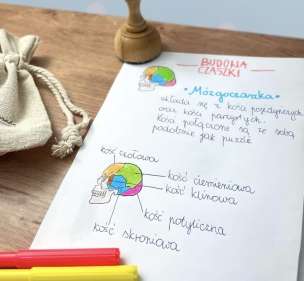 BUDOWA
CZASZKI
• Mózgoczaszka •
składa się z kości pojedynczych
oraz kości parzystych.
Kości połączone są ze sobą
podobnie jak puzzle
kość czołowa
kość ciemieniowa
kość klinowa
kość potyliczna
kość skroniowa